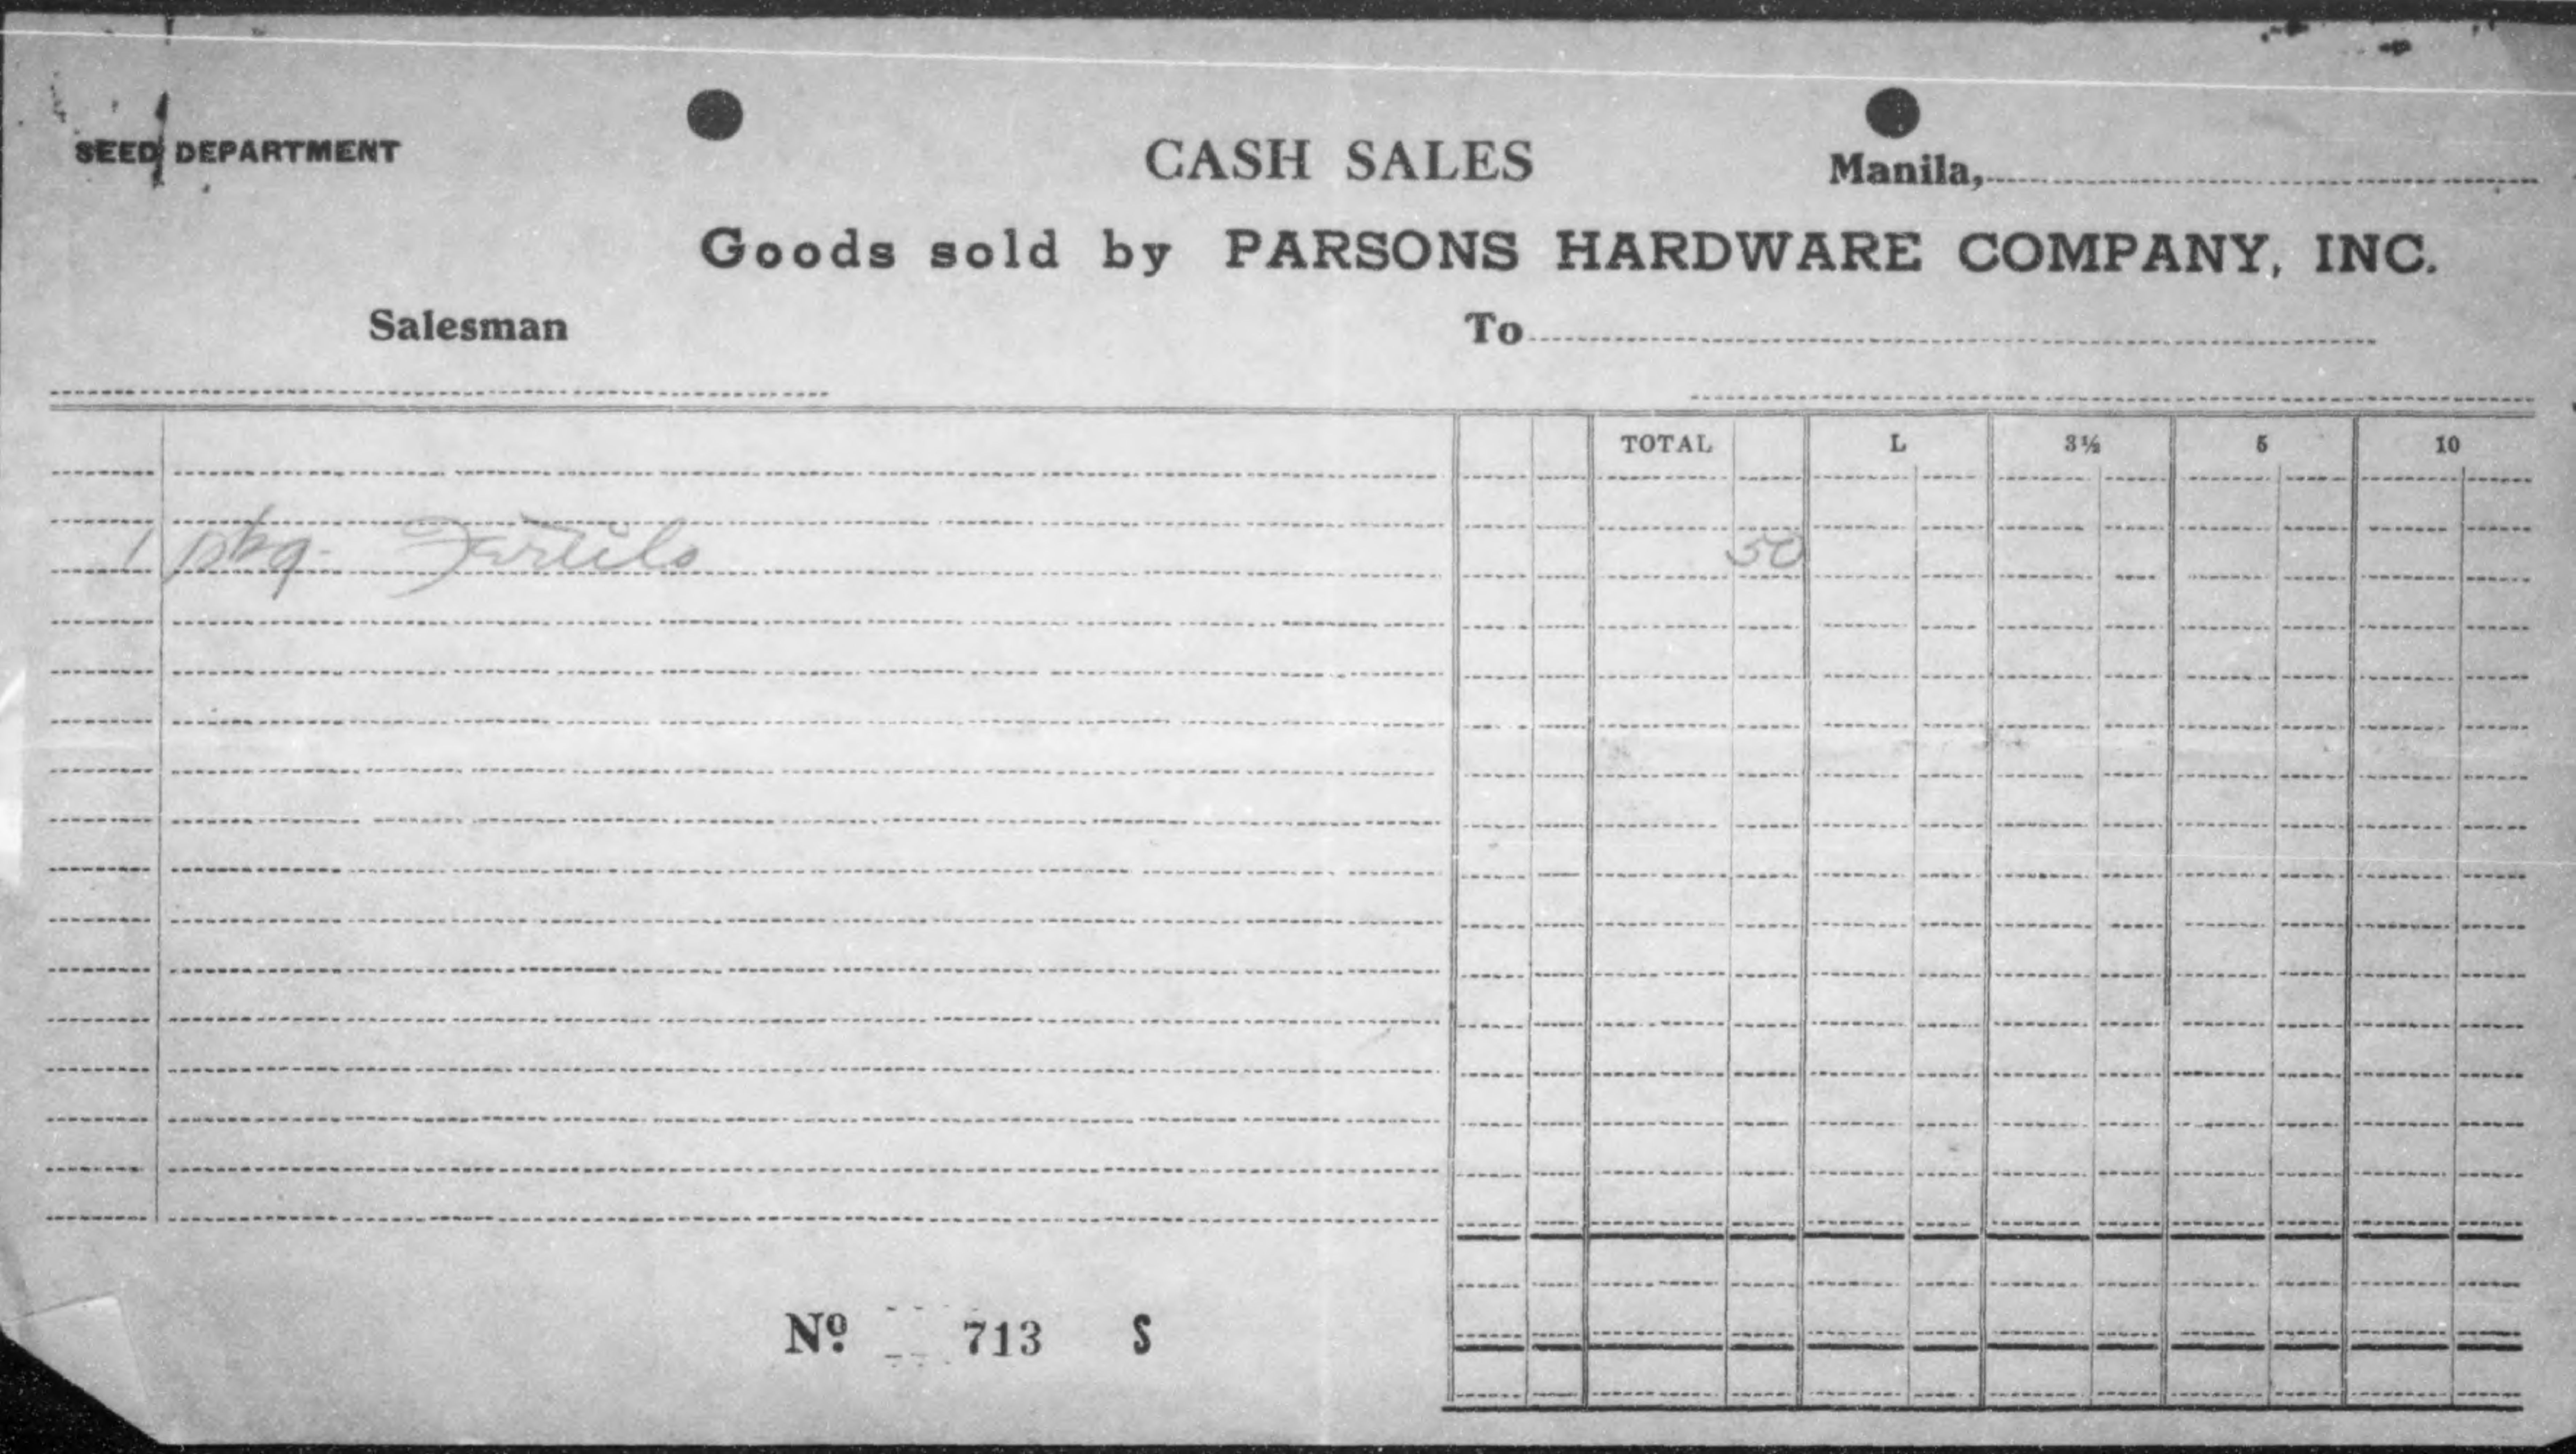 SEED DEPARTMENT
CASH SALES
Manila,
Goods sold by PARSONS HARDWARE COMPANY, INC.
Salesman
To
TOTAL L 3½ 5 10
1 pkg. Fertilo 50
Nº 713 S